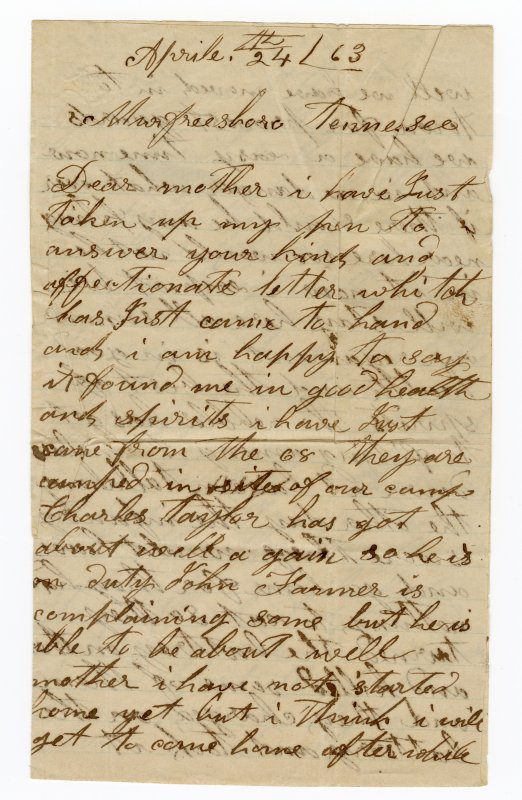 Aprile. 24th / 63
Murfreesboro Tennesee
Dear mother i have Just
Taken up my pen to
answer your kind and
affectionate letter whitch
has Just came to hand
and i am happy to say
it found me in good health
and spirits i have Just
came from the 68 they are
camped in site of our camp
Charles Taylor has got
about well a gain so he is
on duty John Farmer is
complaining some but he is
able to be about well
mother i have not started
home yet but i think i will
get to come home after while